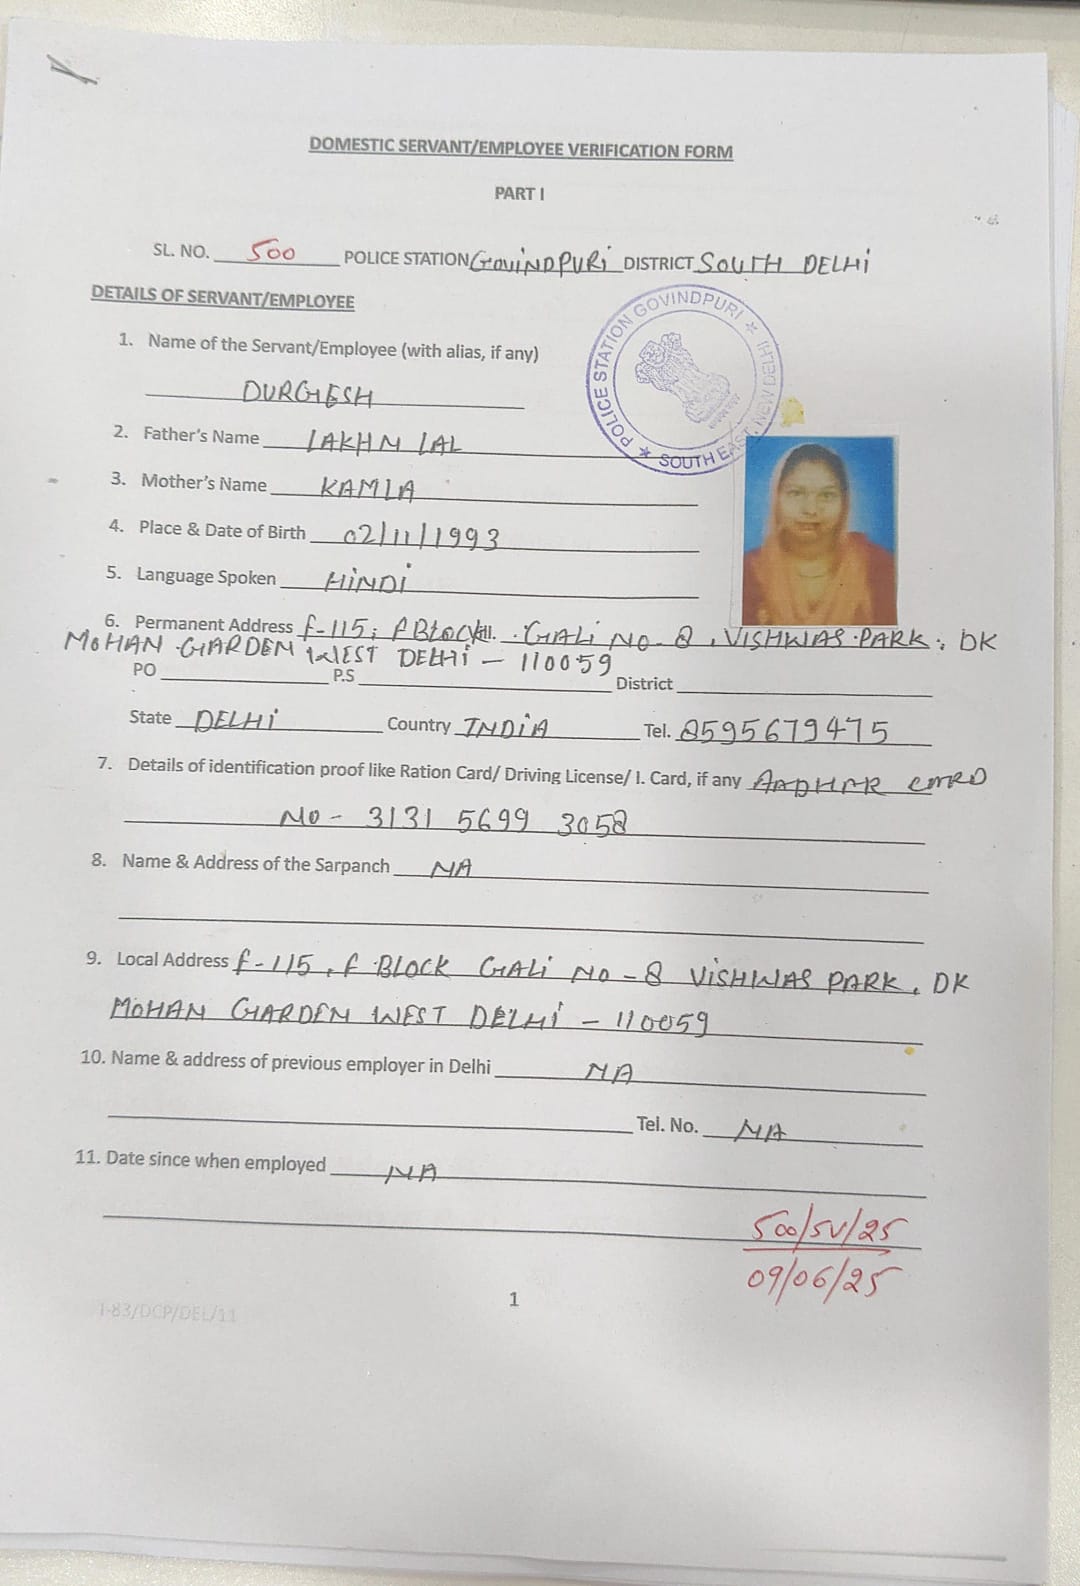 DOMESTIC SERVANT/EMPLOYEE VERIFICATION FORM
PART I
SL. NO. 500 POLICE STATION GOVINDPURI DISTRICT SOUTH DELHI
DETAILS OF SERVANT/EMPLOYEE
POLICE STATION GOVINDPURI ★ SOUTH EAST, NEW DELHI ★
1. Name of the Servant/Employee (with alias, if any)
DURGESH
2. Father's Name LAKHN LAL
3. Mother's Name KAMLA
4. Place & Date of Birth 02/11/1993
5. Language Spoken HINDI
6. Permanent Address F-115, F BLOCK GALI NO-8, VISHWAS PARK, DK
MOHAN GARDEN WEST DELHI - 110059
PO P.S District
State DELHI Country INDIA Tel. 8595679475
7. Details of identification proof like Ration Card/ Driving License/ I. Card, if any AADHAR CARD
NO - 3131 5699 3058
8. Name & Address of the Sarpanch NA
9. Local Address F-115, F BLOCK GALI NO-8 VISHWAS PARK, DK
MOHAN GARDEN WEST DELHI - 110059
10. Name & address of previous employer in Delhi NA
Tel. No. NA
11. Date since when employed NA
500/SV/25
09/06/25
1
T-83/DCP/DEL/11